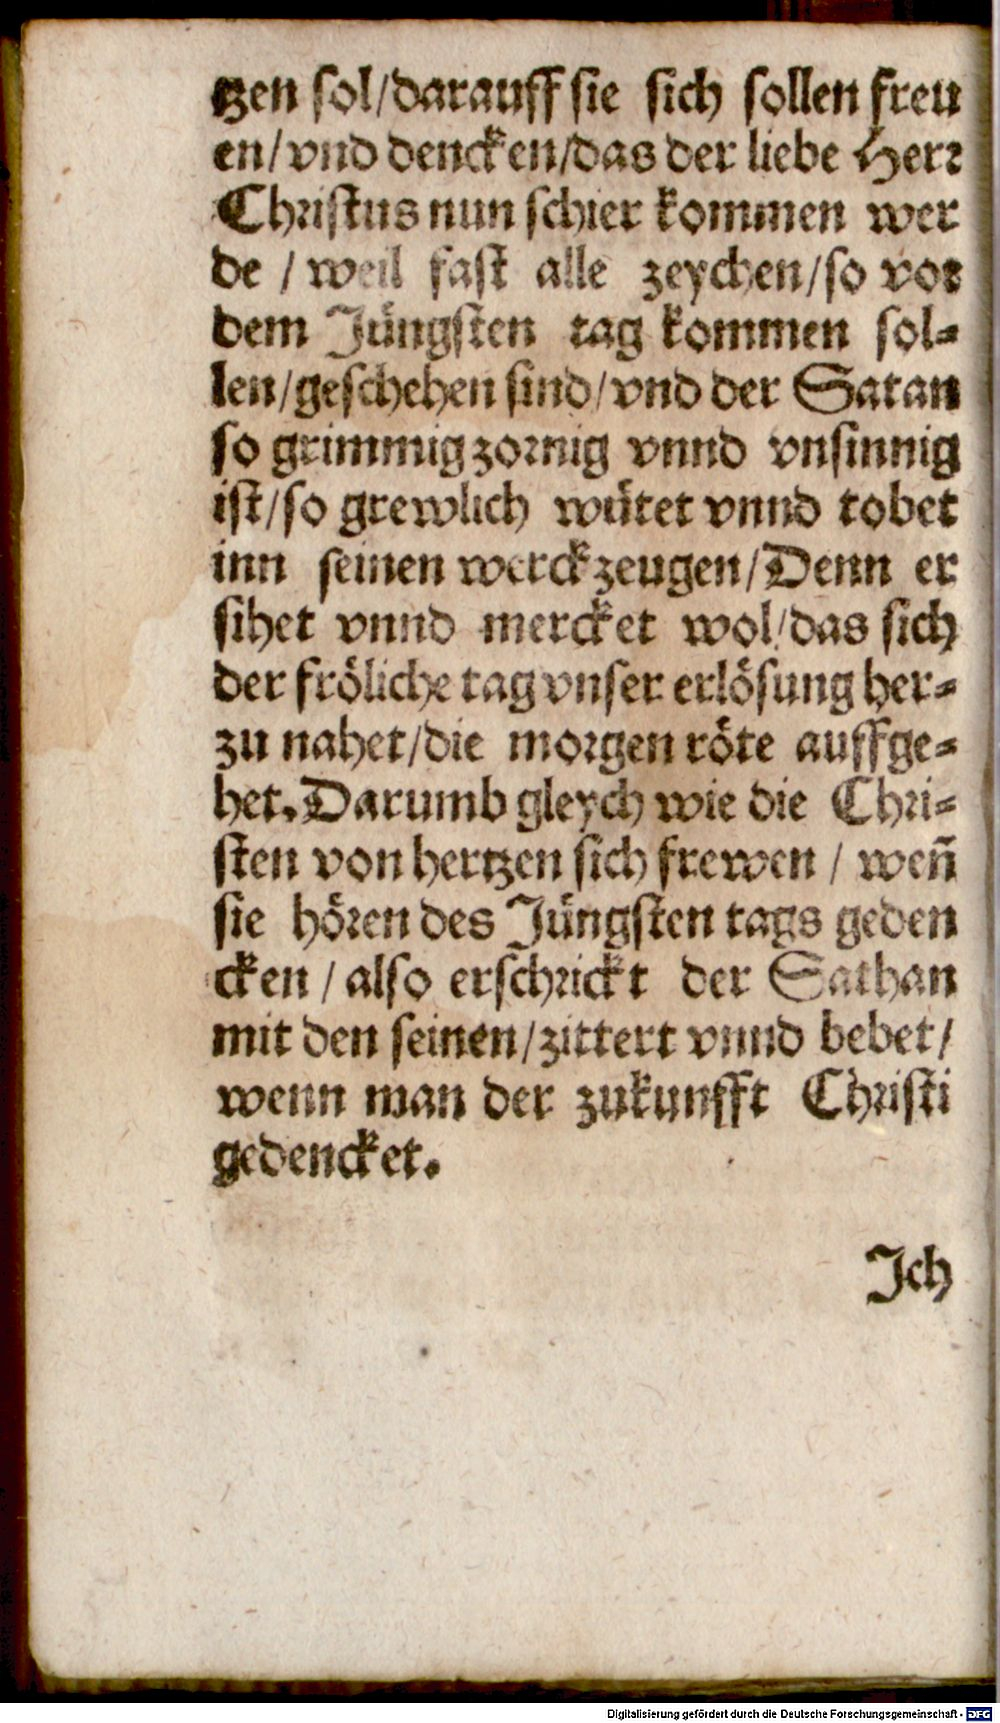 tzen sol/darauff sie sich sollen freu
en/vnd dencken/das der liebe Herr
Christus nun schier kommen wer
de / weil fast alle zeychen/so vor
dem Jüngsten tag kommen sol-
len/geschehen sind/vnd der Satan
so grimmig zornig vnnd vnsinnig
ist/so grewlich wütet vnnd tobet
inn seinen werckzeugen/Denn er
sihet vnnd mercket wol/das sich
der fröliche tag vnser erlösung her-
zu nahet/die morgen röte auffge-
het. Darumb gleych wie die Chri-
sten von hertzen sich frewen / weñ
sie hören des Jüngsten tags geden
cken / also erschrickt der Sathan
mit den seinen/zittert vnnd bebet/
wenn man der zukunfft Christi
gedencket.
Jch
Digitalisierung gefördert durch die Deutsche Forschungsgemeinschaft - DFG